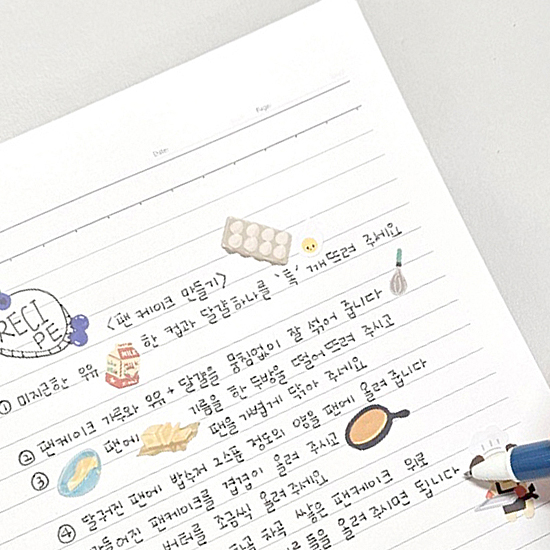 Date.
Page.
RECI
PE
<팬 케이크 만들기>
① 미지근한 우유 한 컵과 달걀하나를 '톡' 깨뜨려 주세요
MILK
② 팬케이크 가루와 우유 + 달걀을 뭉침없이 잘 섞어 줍니다
③ 팬에 기름을 한 두방울 떨어뜨려 주시고
팬을 가볍게 닦아 주세요
④ 달궈진 팬에 밥숟저 2스푼 정도의 양을 팬에 올려 줍니다
들어진 팬케이크를 겹겹이 올려 주시고
버터를 조금씩 올려 주세요
차곡 차곡 쌓은 팬케이크 위로
들을 올려 주시면 됩니다